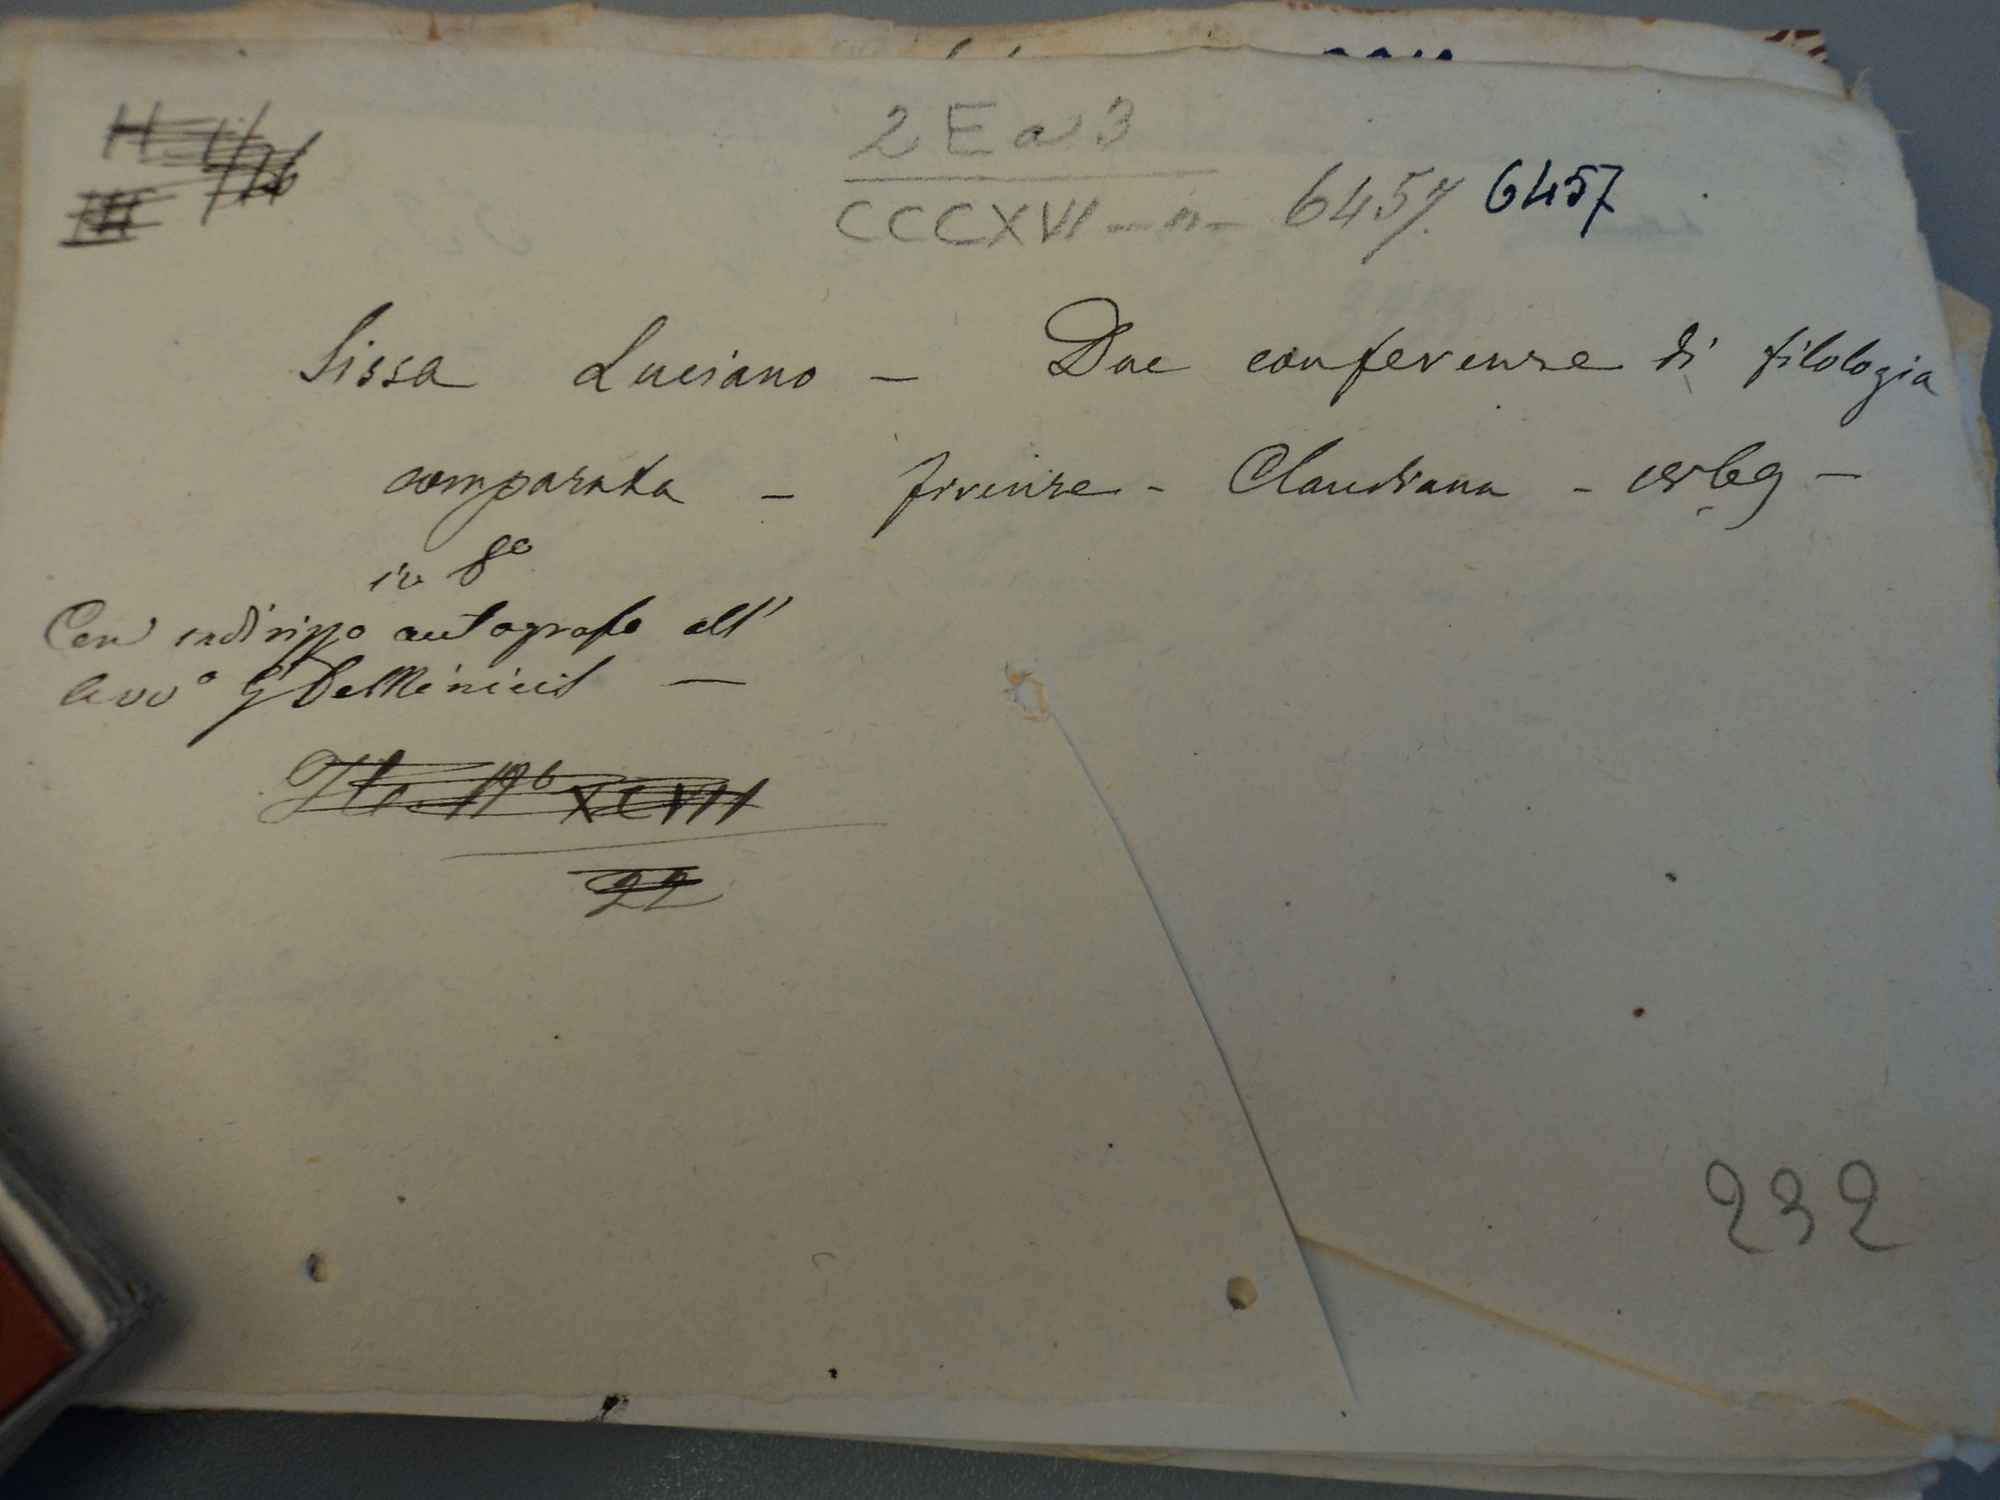 2 E a 3
CCCXVI - n - 6457. 6457
Sissa Luciano - Due conferenze di filologia
comparata - firenze - Claudiana -
in 8º
Con indirizzo autografo all'
Avvº G DeMinicis -
XCVII
22
232